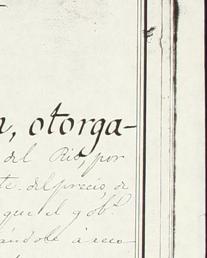 , otorga-
del Rio, por
te del precio, de
que el gob.º
ándole á reco-